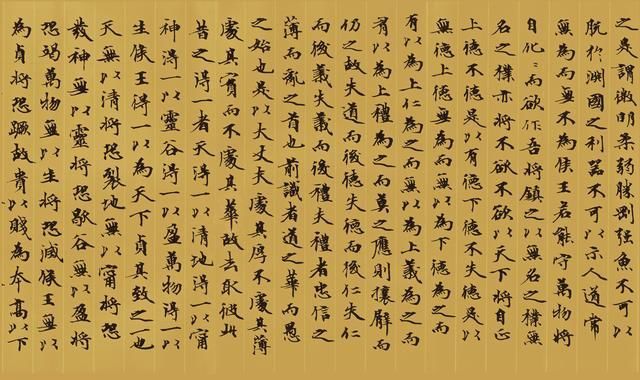 之是謂微明柔弱勝剛強魚不可以
脫於淵國之利器不可以示人道常
無為而無不為侯王若能守萬物將
自化〻而欲作吾將鎮之以無名之樸無
名之樸亦將不欲不欲以天下將自正
上德不德是以有德下德不失德是以
無德上德無為而無以為下德為之而
有以為上仁為之而無以為上義為之而
有以為上禮為之而莫之應則攘臂而
仍之故失道而後德失德而後仁失仁
而後義失義而後禮夫禮者忠信之
薄而亂之首也前識者道之華而愚
之始也是以大丈夫處其厚不處其薄
處其實而不處其華故去取彼此
昔之得一者天得一以清地得一以寧
神得一以靈谷得一以盈萬物得一以
生侯王得一以為天下貞其致之一也
天無以清將恐裂地無以寧將恐
發神無以靈將恐歇谷無以盈將
恐竭萬物無以生將恐滅侯王無以
為貞將恐蹶故貴以賤為本高以下